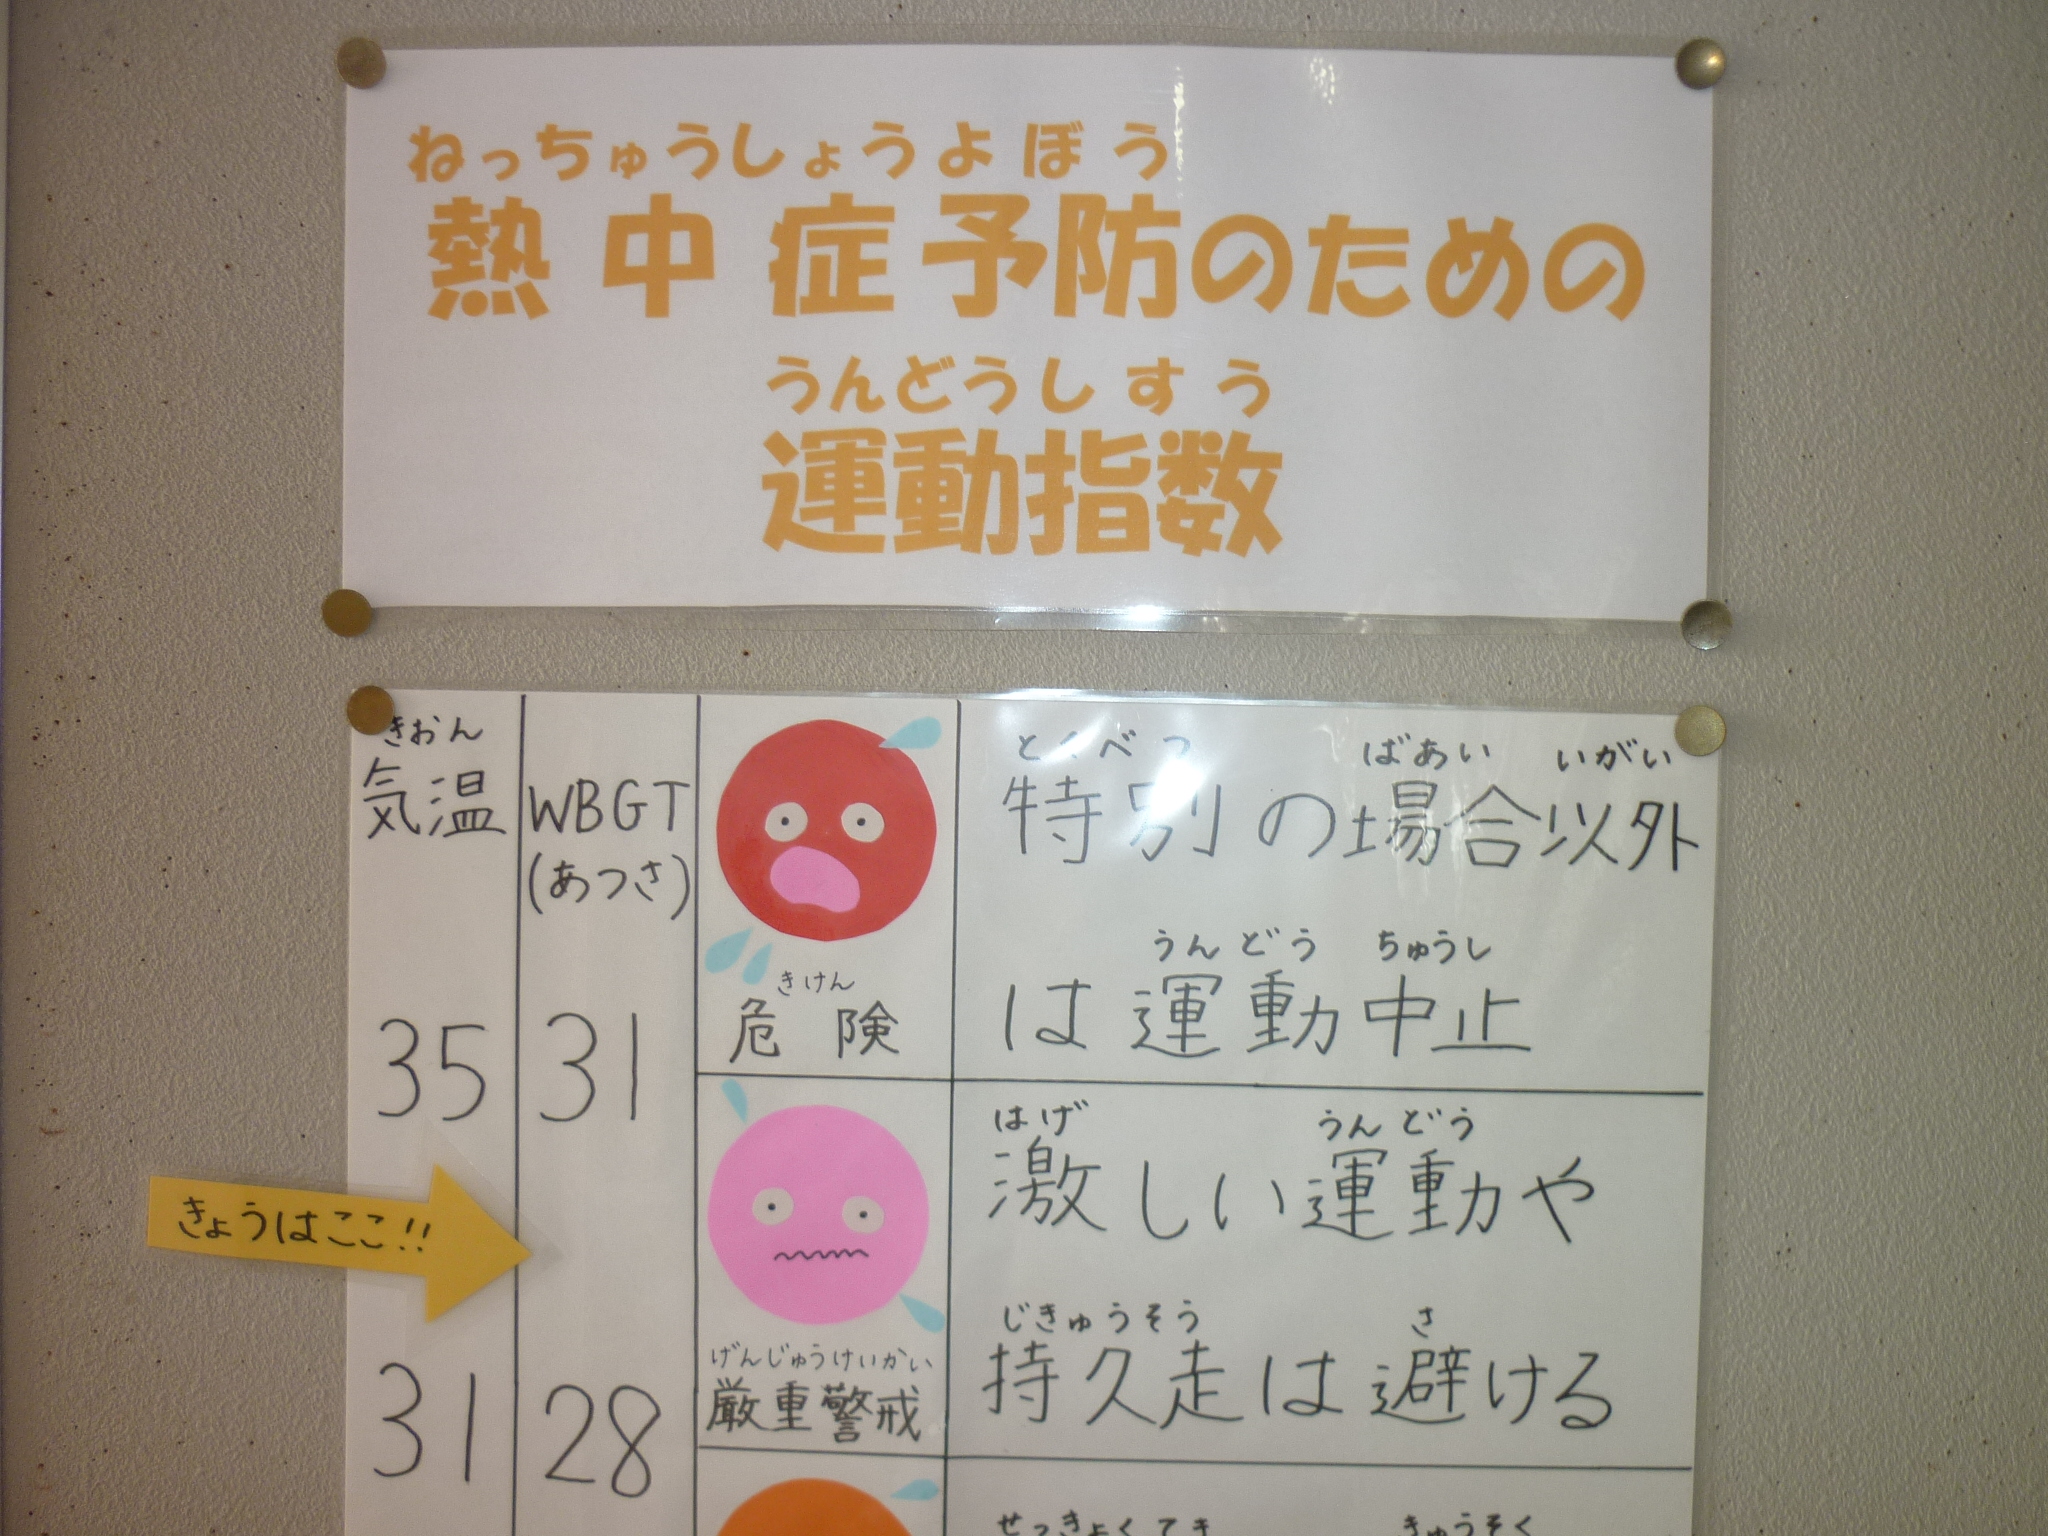 ねっちゅうしょうよぼう
熱中症予防のための
うんどうしすう
運動指数
きおん
気温
WBGT
(あつさ)
35
31
きけん
危険
とくべつ ばあい いがい
特別の場合以外
うんどう ちゅうし
は運動中止
きょうはここ!!
31
28
げんじゅうけいかい
厳重警戒
はげ うんどう
激しい運動や
じきゅうそう さ
持久走は避ける
せっきょくてき きゅうそく